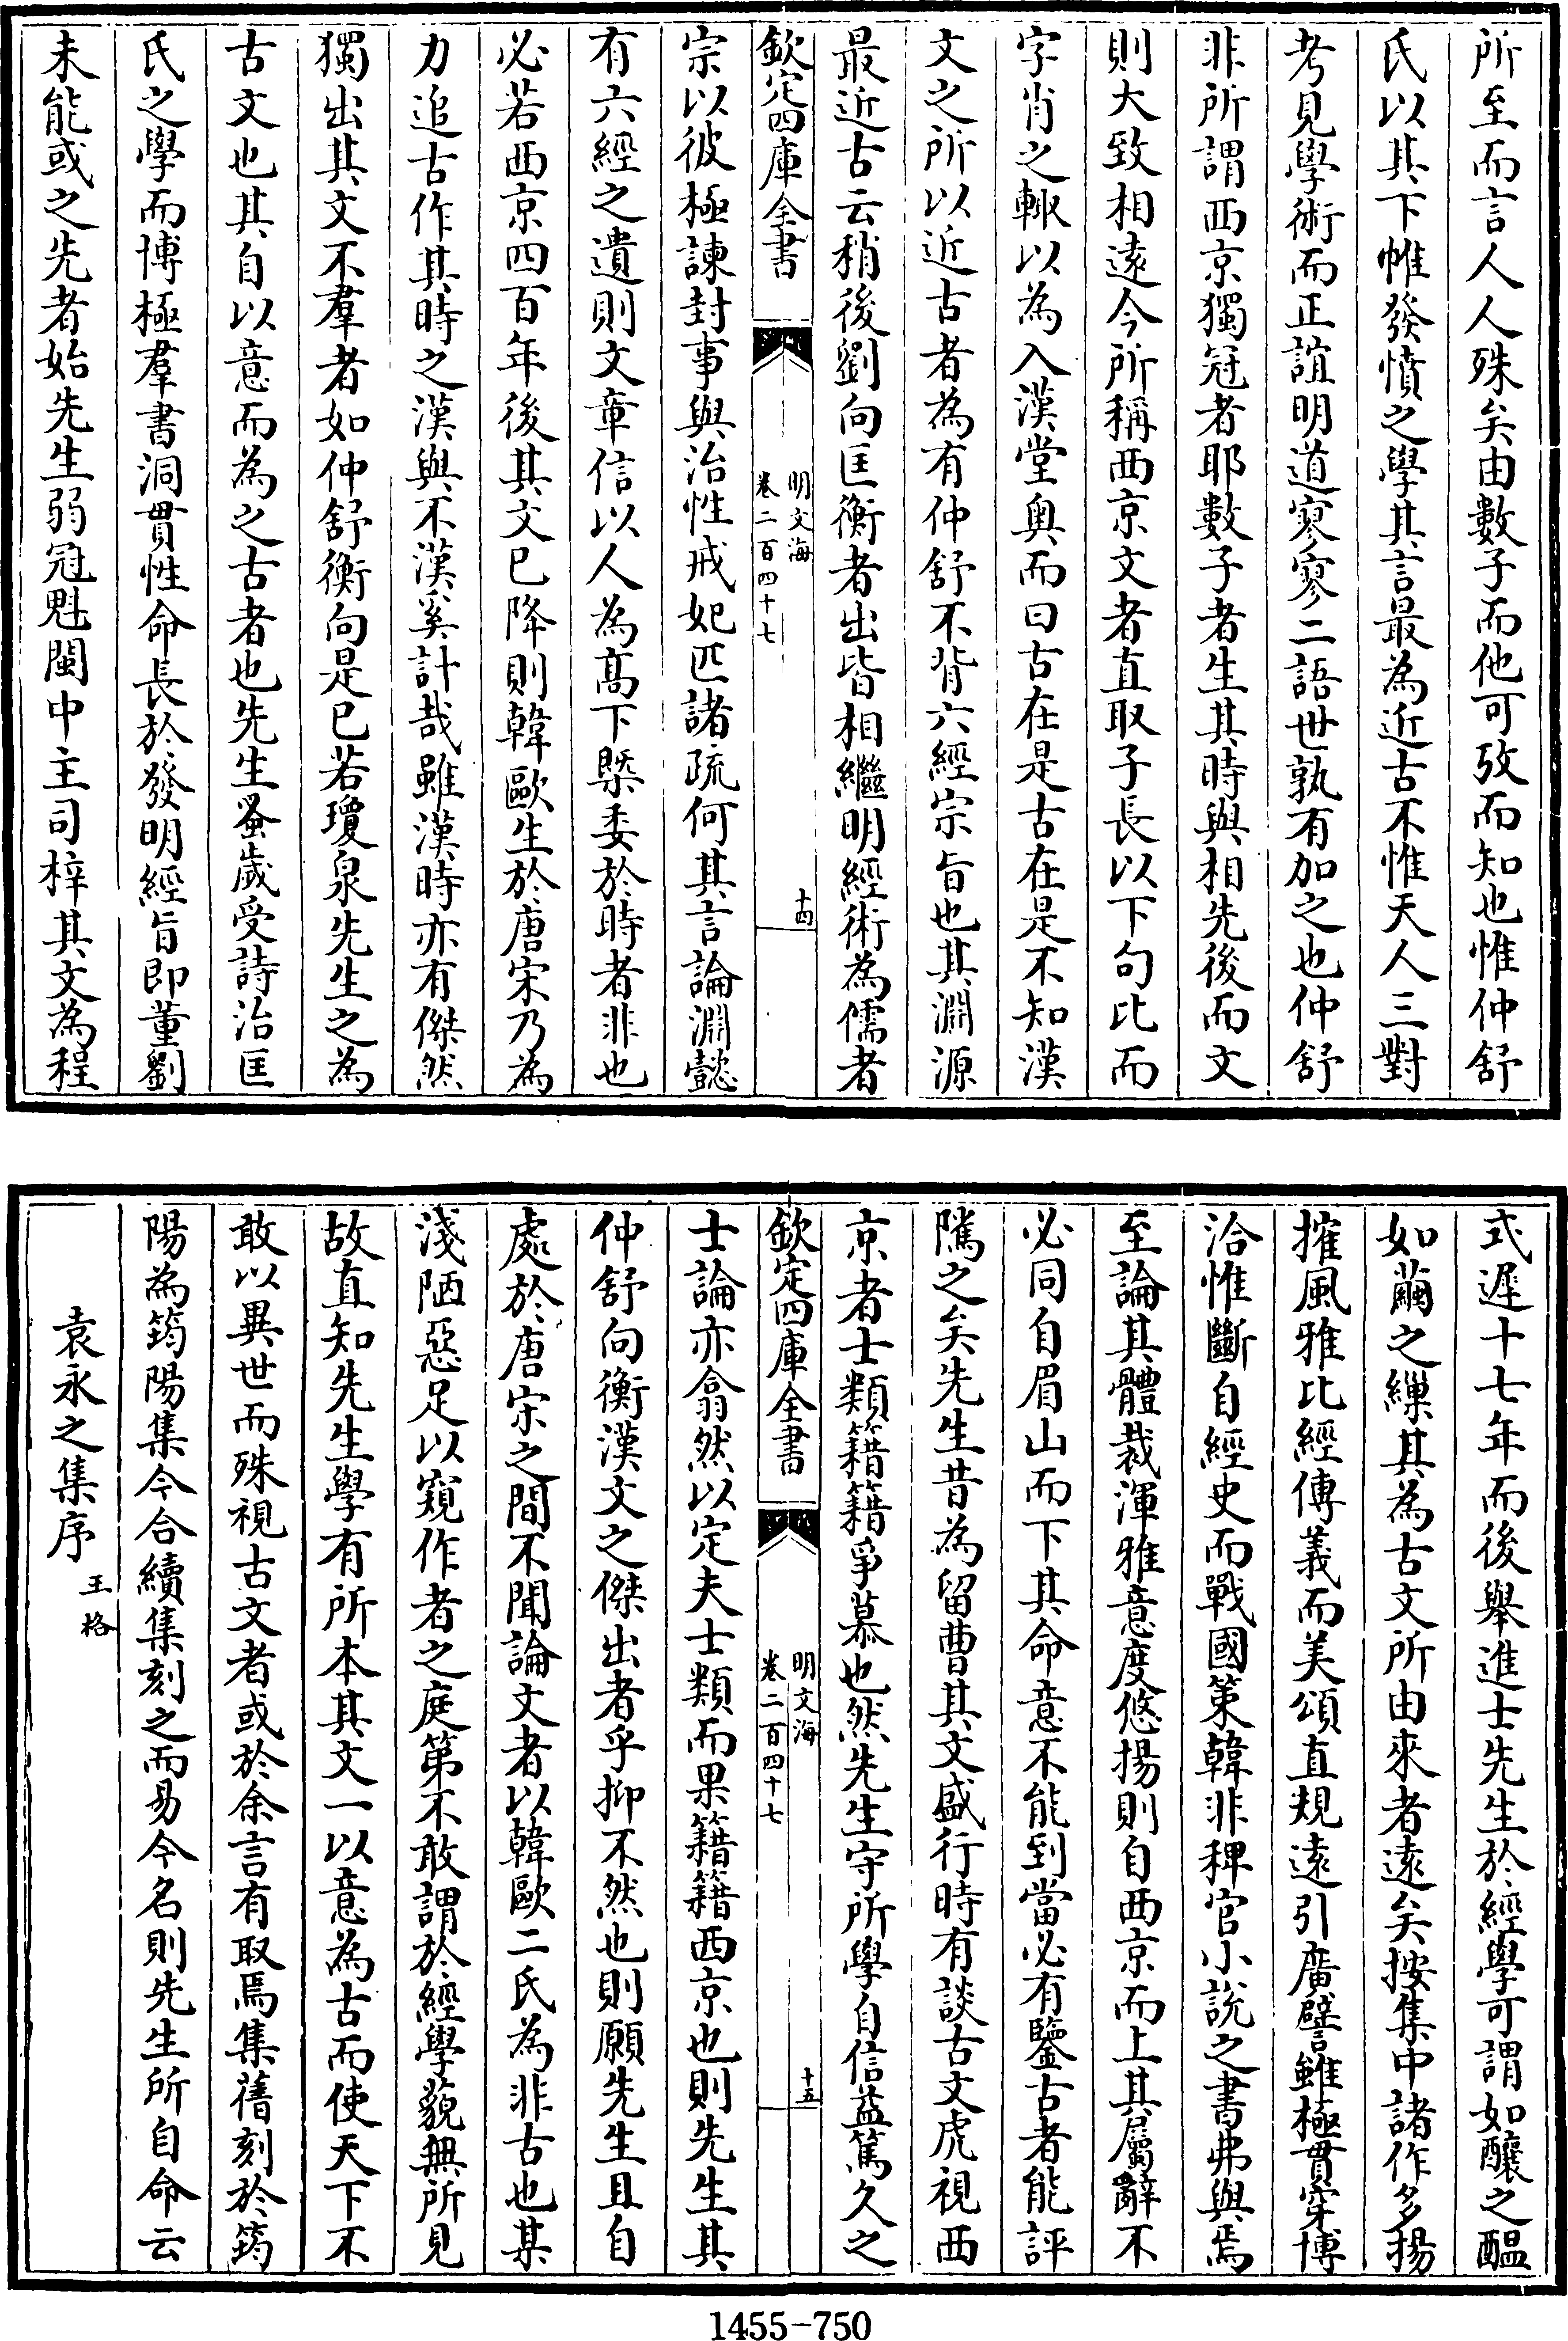 所至而言人人殊矣由數子而他可攷而知也惟仲舒
氏以其下帷發憤之學其言最為近古不惟天人三對
考見學術而正誼明道寥寥二語世孰有加之也仲舒
非所謂西京獨冠者耶數子者生其時與相先後而文
則大致相遠今所稱西京文者直取子長以下句比而
字肖之輙以為入漢堂奥而曰古在是古在是不知漢
文之所以近古者為有仲舒不背六經宗旨也其淵源
最近古云稍後劉向匡衡者出皆相繼明經術為儒者
欽定四庫全書
明文海
卷二百四十七
十四
宗以彼極諫封事與治性戒妃匹諸疏何其言論淵懿
有六經之遺則文章信以人為髙下槩委於時者非也
必若西京四百年後其文已降則韓歐生於唐宋乃為
力追古作其時之漢與不漢奚計哉雖漢時亦有傑然
獨出其文不羣者如仲舒衡向是已若瓊泉先生之為
古文也其自以意而為之古者也先生蚤嵗受詩治匡
氏之學而博極羣書洞貫性命長於發明經旨即董劉
未能或之先者始先生弱冠魁閩中主司梓其文為程
式遲十七年而後舉進士先生於經學可謂如釀之醖
如繭之繅其為古文所由來者遠矣按集中諸作多揚
搉風雅比經傳義而美頌直規遠引廣譬雖極貫穿博
洽惟斷自經史而戰國策韓非稗官小說之書弗與焉
至論其體裁渾雅意度悠揚則自西京而上其屬辭不
必同自眉山而下其命意不能到當必有鑒古者能評
隲之矣先生昔為留曹其文盛行時有談古文虎視西
京者士類籍籍爭慕也然先生守所學自信益篤久之
欽定四庫全書
明文海
卷二百四十七
十五
士論亦翕然以定夫士類而果籍籍西京也則先生其
仲舒向衡漢文之傑出者乎抑不然也則願先生且自
處於唐宋之間不聞論文者以韓歐二氏為非古也某
淺陋惡足以窺作者之庭第不敢謂於經學藐無所見
故直知先生學有所本其文一以意為古而使天下不
敢以異世而殊視古文者或於余言有取焉集舊刻於筠
陽為筠陽集今合續集刻之而易今名則先生所自命云
袁永之集序
王格
1455-750